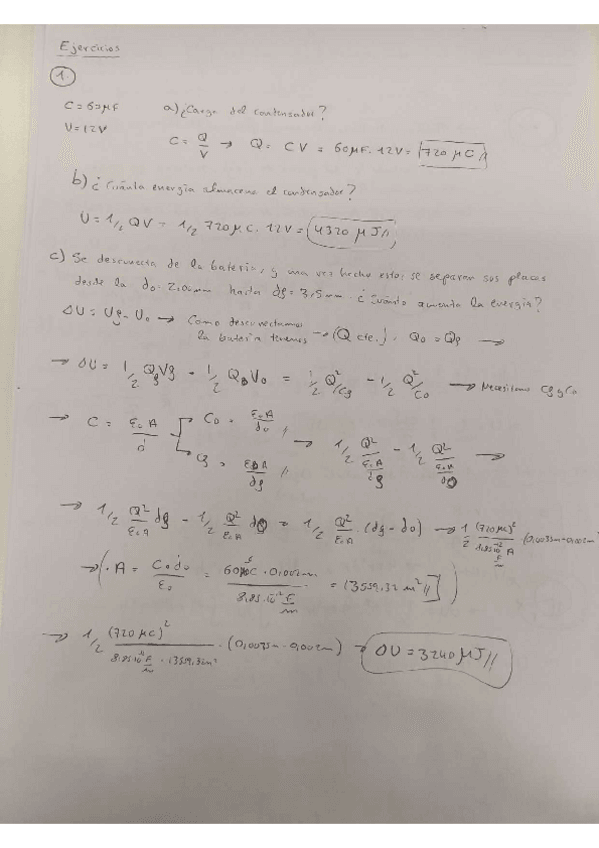 Ejercicios
1
C = 60 μF a) ¿Carga del condensador?
V = 12V
C = Q/V → Q = CV = 60μF · 12V = 720 μC //
b) ¿Cuánta energía almacena el condensador?
U = 1/2 QV = 1/2 720μC · 12V = 4320 μJ //
c) Se desconecta de la batería, y una vez hecho esto: se separan sus placas
desde la d₀ = 2,00mm hasta df = 3,5mm ¿Cuánto aumenta la energía?
ΔU = Uf - U₀ → Como desconectamos la batería tenemos → (Q cte.) , Q₀ = Qf →
→ ΔU = 1/2 Qf Vf - 1/2 Q₀ V₀ = 1/2 Q²/Cf - 1/2 Q²/C₀ → Necesitamos Cf y C₀
→ C = ε₀A/d C₀ = ε₀A/d₀ // Cf = ε₀A/df // → 1/2 Q²/(ε₀A/df) - 1/2 Q²/(ε₀A/d₀) →
→ 1/2 Q²/ε₀A df - 1/2 Q²/ε₀A d₀ = 1/2 Q²/ε₀A · (df - d₀) → 1/2 (720μC)²/(8,85·10⁻¹² F/m A) · (0,0035m - 0,002m)
→ ( · A = C₀d₀/ε₀ = 60 · 0,002m / 8,85·10⁻¹² F/m = 13559,32 m² // )
→ 1/2 (720 μC)²/(8,85·10⁻¹² F/m · 13559,32m²) · (0,0035m - 0,002m) → ΔU = 3240 μJ //